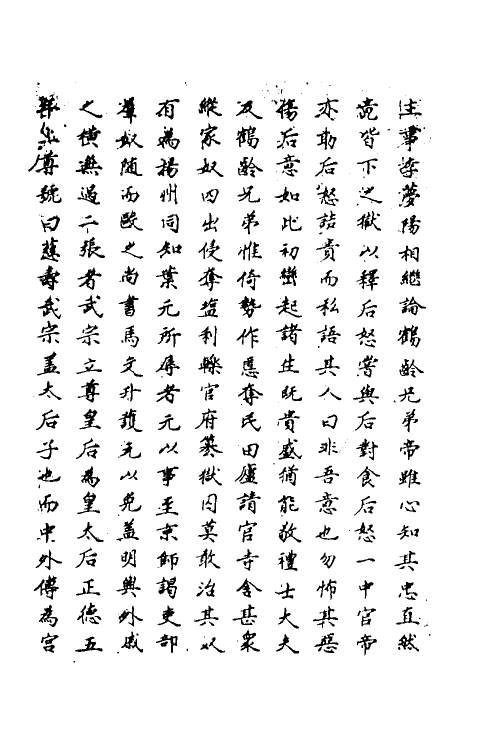 主事李夢陽相繼論鶴齡兄弟帝雖心知其忠直然
竟皆下之獄以釋后怒嘗與后對食后怒一中官帝
亦勃后怒詰責而私語其人曰非吾意也勿怖其惡
傷后意如此初巒起諸生既貴盛猶能敬禮士大夫
及鶴齡兄弟惟倚勢作慝奪民田廬請官寺舍甚衆
縱家奴四出侵奪鹽利轢官府篡獄囚莫敢治其奴
有為楊州同知葉元所辱者元以事至京師謁吏部
羣奴随而毆之尚書馬文升護元以免蓋明興外戚
之橫無過二張者武宗立尊皇后為皇太后正德五
年上尊號曰慈壽武宗蓋太后子也而中外傳為宮